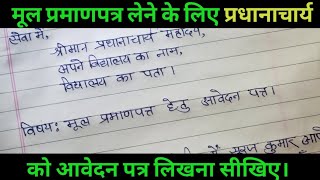 मूल प्रमाणपत्र लेने के लिए प्रधानाचार्य
सेवा में,
श्रीमान प्रधानाचार्य महोदय,
अपने विद्यालय का नाम,
विद्यालय का पता।
विषय: मूल प्रमाणपत्र हेतु आवेदन पत्र।
कुमार
को आवेदन पत्र लिखना सीखिए।